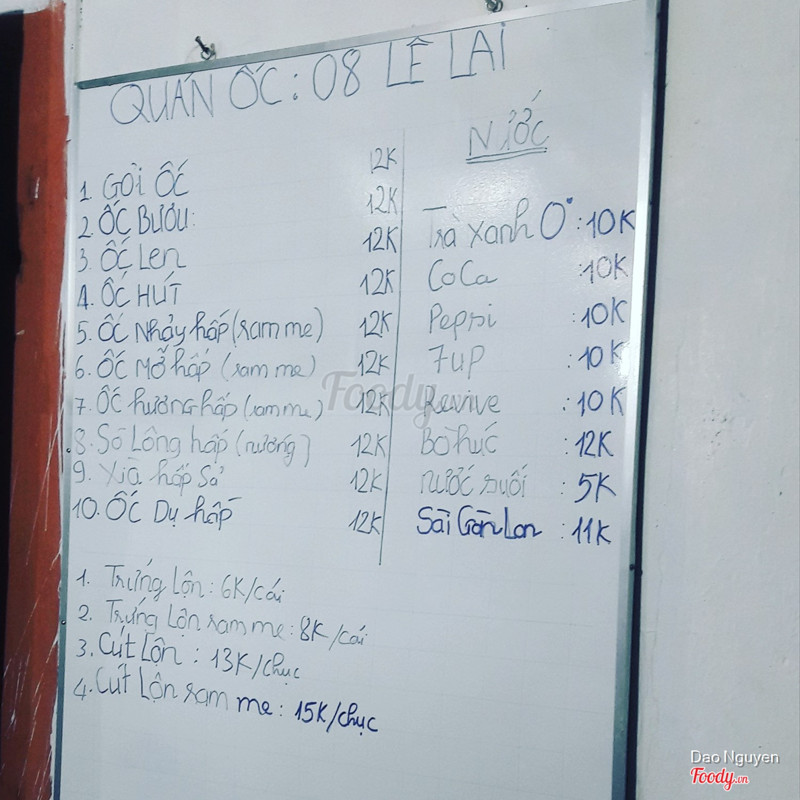 QUÁN ỐC: 08 LÊ LAI
1. GỎI ỐC 12K
2. ỐC BƯƠU: 12K
3. ỐC Len 12K
4. ỐC HÚT 12K
5. ỐC Nhảy hấp (ram me) 12K
6. ỐC Mỡ hấp (ram me) 12K
7. ỐC hương hấp (ram me) 12K
8. Sò Lông hấp (nướng) 12K
9. Xìa hấp Sả 12K
10. ỐC Dụ hấp 12K
NƯỚC
Trà xanh 0° : 10K
CoCa : 10K
Pepsi : 10K
7up : 10K
Revive : 10K
Bò húc : 12K
nước suối : 5K
Sài Gòn Lon : 11K
1. Trứng Lộn : 6K/cái
2. Trứng Lộn ram me : 8K/cái
3. Cút Lộn : 13K/chục
4. Cút Lộn ram me : 15K/chục
Foody
Dao Nguyen
Foody.vn